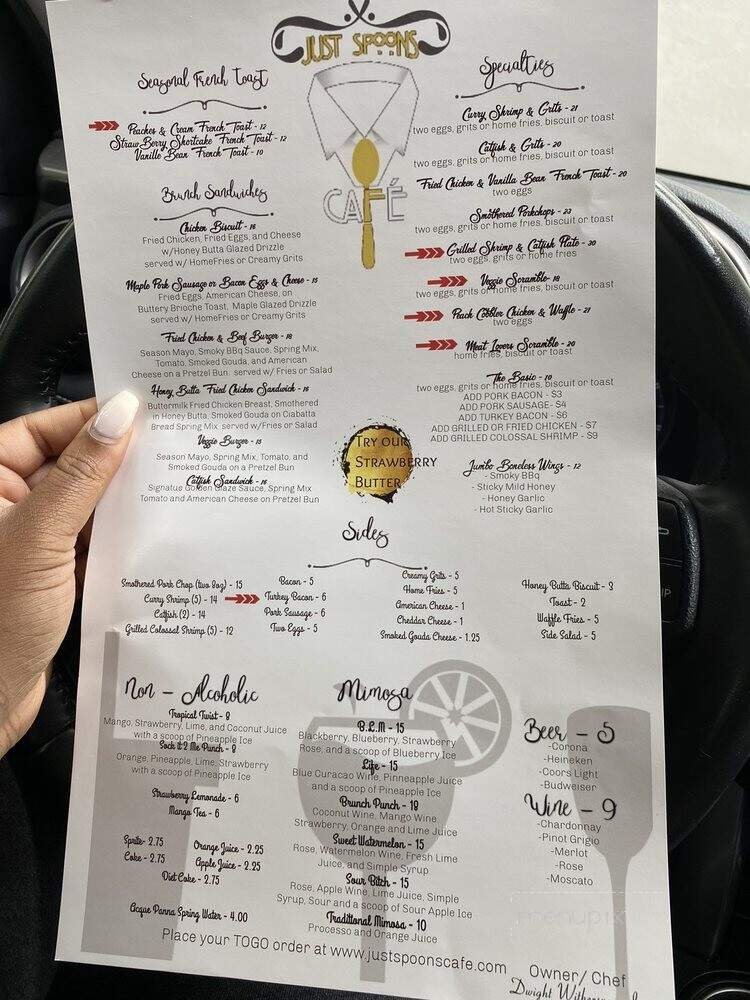 JUST SPOONS
CAFÉ
Seasonal French Toast
Peaches & Cream French Toast - 12
StrawBerry Shortcake French Toast - 12
Vanille Bean French Toast - 10
Brunch Sandwiches
Chicken Biscuit - 16
Fried Chicken, Fried Eggs, and Cheese
w/Honey Butta Glazed Drizzle
served w/ HomeFries or Creamy Grits
Maple Pork Sausage or Bacon Eggs & Cheese - 15
Fried Eggs, American Cheese, on
Buttery Brioche Toast, Maple Glazed Drizzle
served w/ HomeFries or Creamy Grits
Fried Chicken & Beef Burger - 18
Season Mayo, Smoky BBQ Sauce, Spring Mix,
Tomato, Smoked Gouda, and American
Cheese on a Pretzel Bun. served w/ Fries or Salad
Honey Butta Fried Chicken Sandwich - 16
Buttermilk Fried Chicken Breast, Smothered
in Honey Butta, Smoked Gouda on Ciabatta
Bread Spring Mix served w/Fries or Salad
Veggie Burger - 15
Season Mayo, Spring Mix, Tomato, and
Smoked Gouda on a Pretzel Bun
Catfish Sandwich - 16
Signatue Golden Glaze Sauce, Spring Mix
Tomato and American Cheese on Pretzel Bun
Specialties
Curry Shrimp & Grits - 21
two eggs, grits or home fries, biscuit or toast
Catfish & Grits - 20
two eggs, grits or home fries, biscuit or toast
Fried Chicken & Vanilla Bean French Toast - 20
two eggs
Smothered Porkchops - 22
two eggs, grits or home fries, biscuit or toast
Grilled Shrimp & Catfish Plate - 30
two eggs, grits or home fries
Veggie Scramble - 18
two eggs, grits or home fries, biscuit or toast
Peach Cobbler Chicken & Waffle - 21
two eggs
Meat Lovers Scramble - 20
home fries, biscuit or toast
The Basic - 10
two eggs, grits or home fries, biscuit or toast
ADD PORK BACON - $3
ADD PORK SAUSAGE - $4
ADD TURKEY BACON - $6
ADD GRILLED OR FRIED CHICKEN - $7
ADD GRILLED COLOSSAL SHRIMP - $9
TRY OUR
STRAWBERRY
BUTTER
Jumbo Boneless Wings - 12
- Smoky BBq
- Sticky Mild Honey
- Honey Garlic
- Hot Sticky Garlic
Sides
Smothered Pork Chop (two 8oz) - 15
Curry Shrimp (5) - 14
Catfish (2) - 14
Grilled Colossal Shrimp (5) - 12
Bacon - 5
Turkey Bacon - 6
Pork Sausage - 6
Two Eggs - 5
Creamy Grits - 5
Home Fries - 5
American Cheese - 1
Cheddar Cheese - 1
Smoked Gouda Cheese - 1.25
Honey Butta Biscuit - 3
Toast - 2
Waffle Fries - 5
Side Salad - 5
Non - Alcoholic
Tropical Twist - 8
Mango, Strawberry, Lime, and Coconut Juice
with a scoop of Pineapple Ice
Sock it 2 Me Punch - 8
Orange, Pineapple, Lime, Strawberry
with a scoop of Pineapple Ice
Strawberry Lemonade - 6
Mango Tea - 6
Sprite- 2.75
Coke - 2.75
Orange Juice - 2.25
Apple Juice - 2.25
Diet Coke - 2.75
Acque Panna Spring Water - 4.00
Mimosa
B.L.M - 15
Blackberry, Blueberry, Strawberry
Rose, and a scoop of Blueberry Ice
Life - 15
Blue Curacao Wine, Pinneapple Juice
and a scoop of Pineapple Ice
Brunch Punch - 18
Coconut Wine, Mango Wine
Strawberry, Orange and Lime Juice
Sweet Watermelon - 15
Rose, Watermelon Wine, Fresh Lime
Juice, and Simple Syrup
Sour Bitch - 15
Rose, Apple Wine, Lime Juice, Simple
Syrup, Sour and a scoop of Sour Apple Ice
Traditional Mimosa - 10
Processo and Orange Juice
Beer - 5
-Corona
-Heineken
-Coors Light
-Budweiser
Wine - 9
-Chardonnay
-Pinot Grigio
-Merlot
-Rose
-Moscato
menupix
Place your TOGO order at www.justspoonscafe.com
Owner/ Chef
Dwight